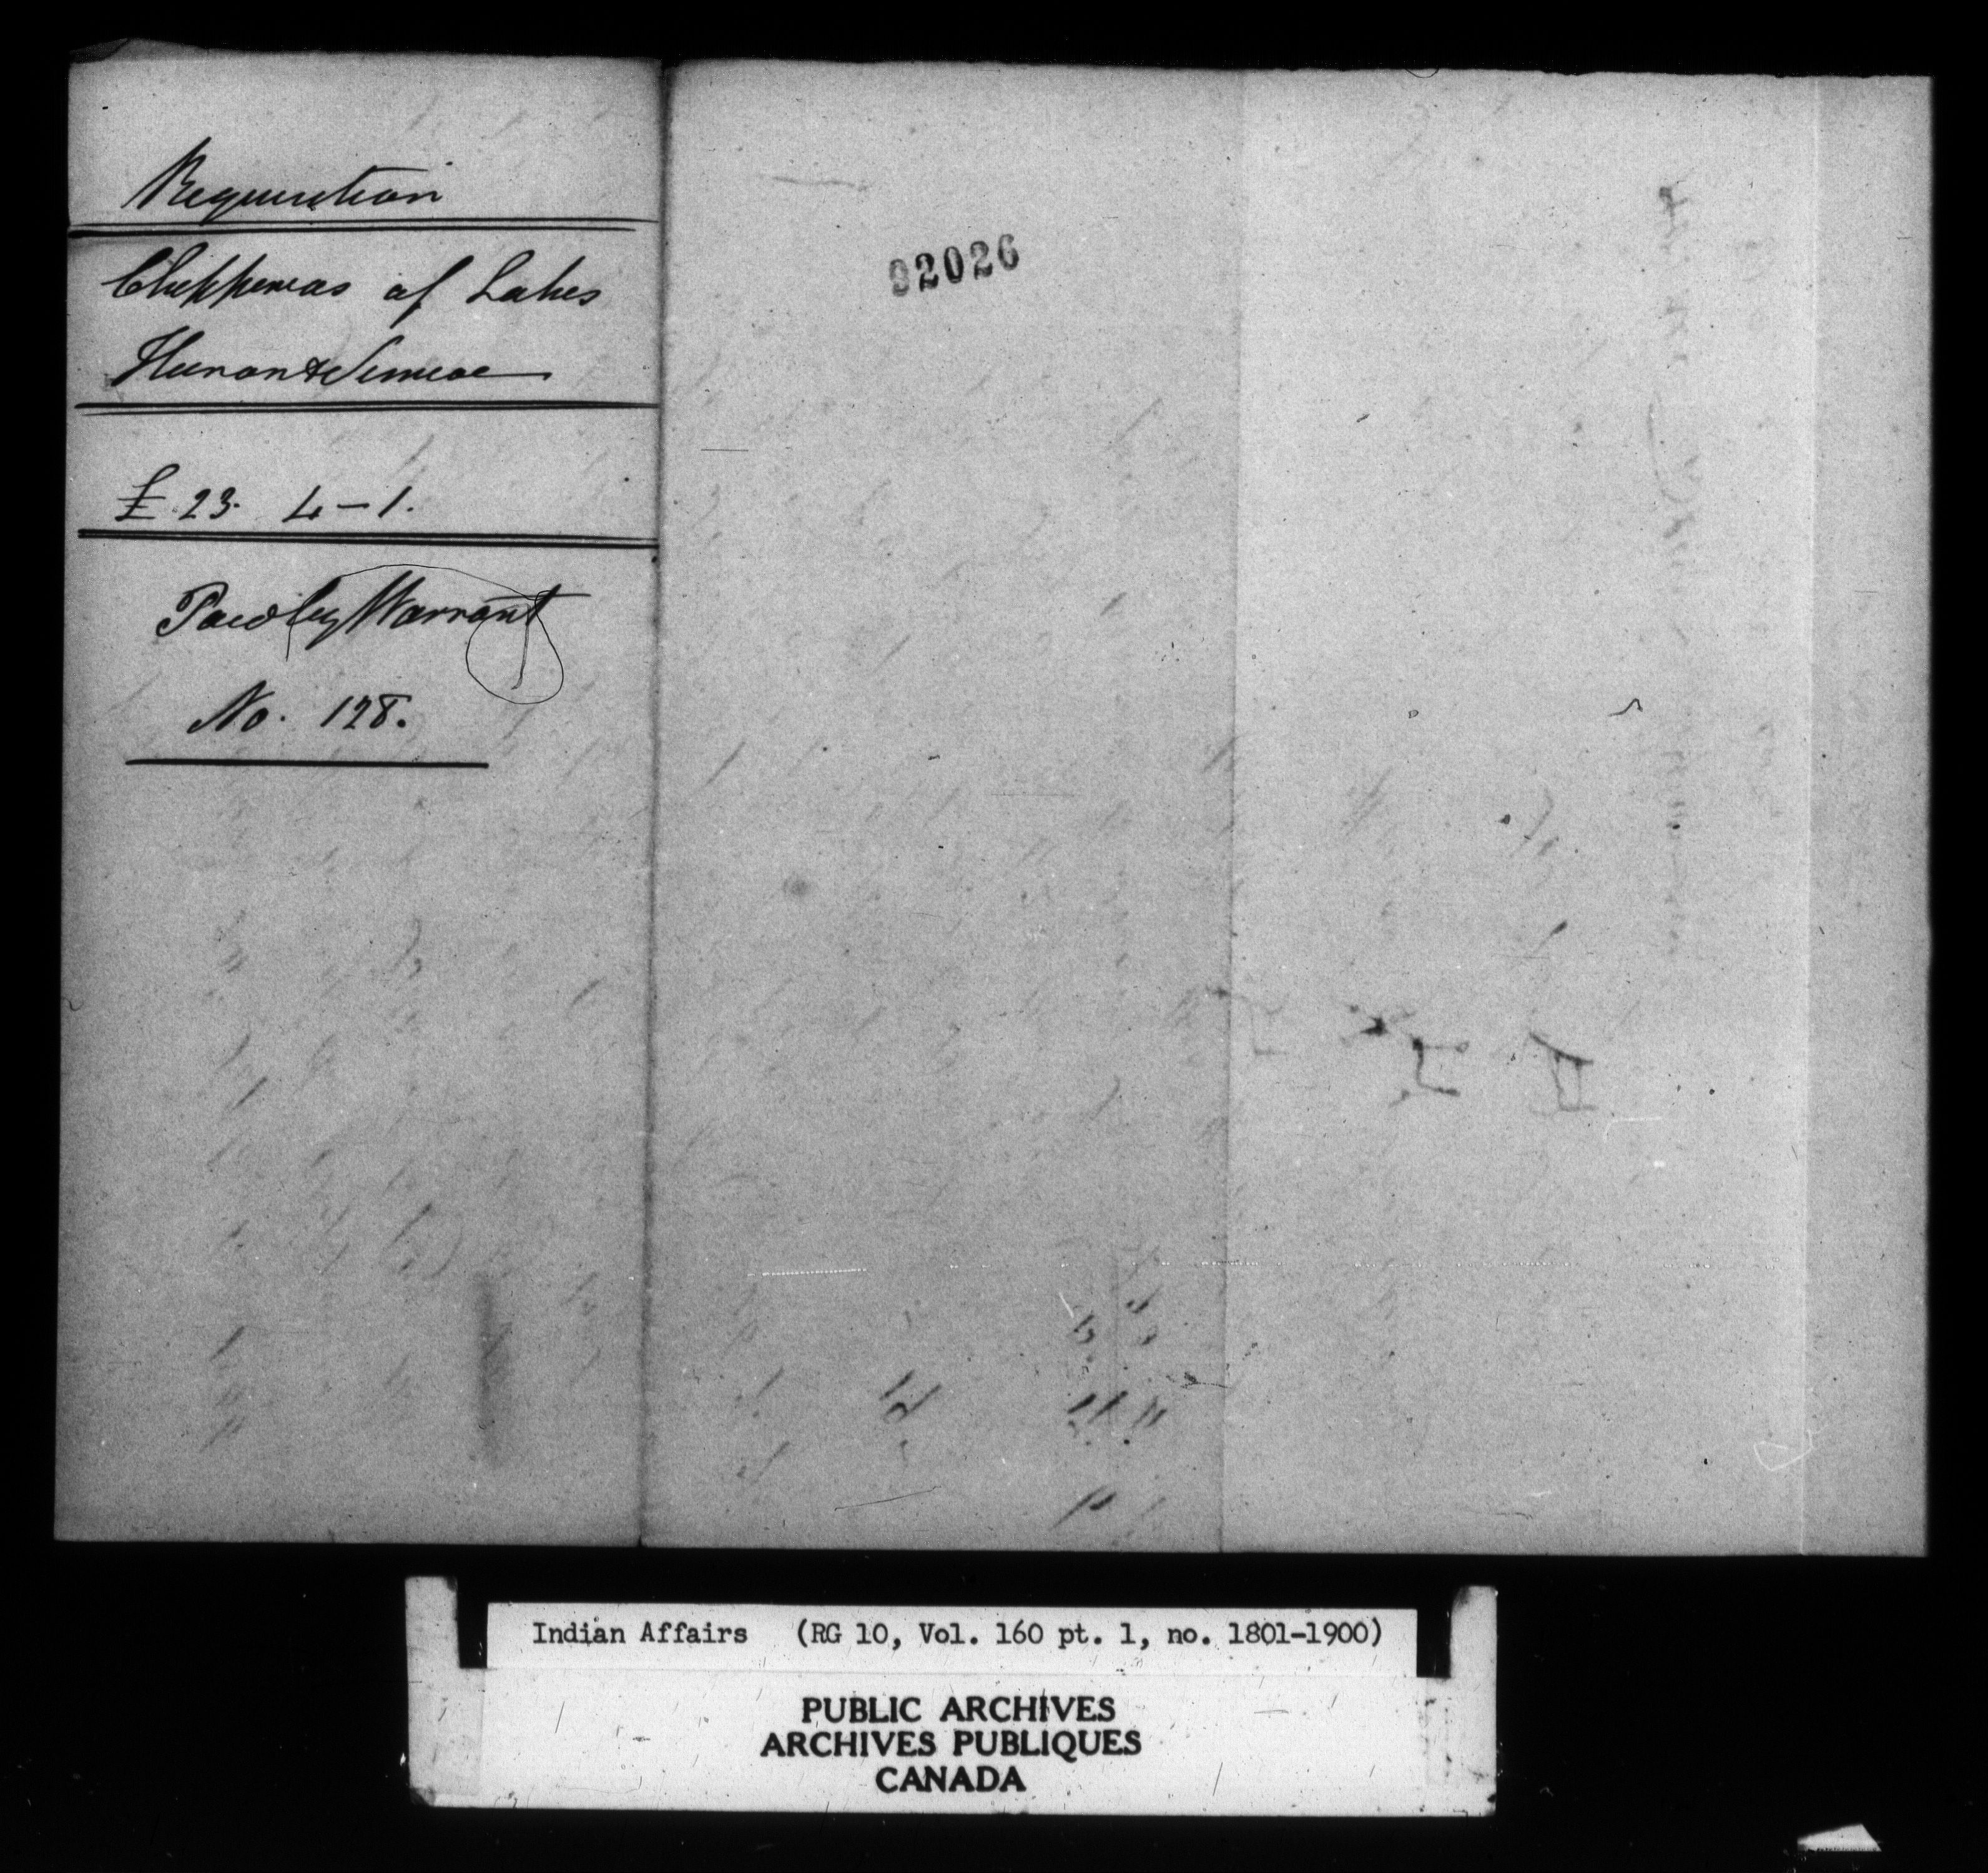 Requisition
Chippewas of Lakes
Huron & Simcoe
£ 23. 4 - 1.
Paid by Warrant
No. 128.
92026
Indian Affairs (RG 10, Vol. 160 pt. 1, no. 1801-1900)
PUBLIC ARCHIVES
ARCHIVES PUBLIQUES
CANADA